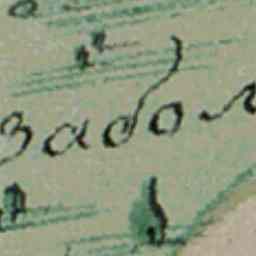 забол